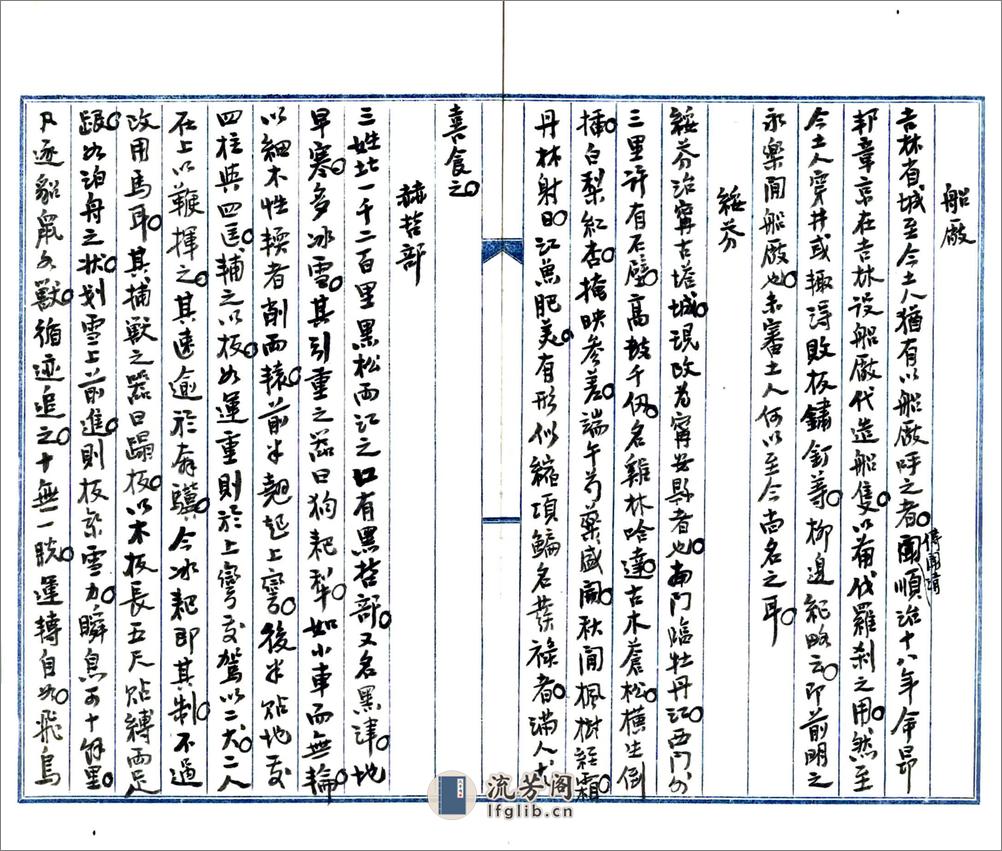 船廠
吉林省城至今土人猶有以船廠呼之者。聞順治十八年命昂
傳聞前清
邦章京在吉林設船廠代造船隻。以備伐羅刹之用。然至
今土人穿井或輙得敗板鏽釘等。柳邊記略云即前明之
永樂間船廠也未審土人何以至今尚名之耳。
綏芬
綏芬治甯古塔城。現改为甯安縣者也。南門臨牡丹江。西門外
三里許有石壁。高坡千仭。名雞林哈達。古木蒼松橫生倒
插。白梨紅杏。掩映參差。端午芍藥盛開。秋間楓樹經霜。
丹林射日。江魚肥美。有形似縮項鯿名發祿者。滿人尤
喜食之。
赫哲部
三姓北一千二百里黑松兩江之口有黑哲部。又名黑津。地
早寒。多冰雪。其引重之器曰狗耙犂。如小車而無輪。
以細木性輭者削兩轅。前半翹起上彎。後半貼地更
四柱與四匡輔之以板。如運重則於上彎處駕以二犬。二人
在上以鞭揮之。其速逾於奔驥。今冰耙即其制。不過
改用馬耳。其捕獸之器曰蹋板。以木板長五尺貼縛兩足
跟。如泊舟之狀。划雪上前進。則板乘雪力。瞬息可十餘里。
凡逐貂鼠各獸。循迹追之。十無一脫。運轉自如。飛鳥
流芳阁
lfglib.cn